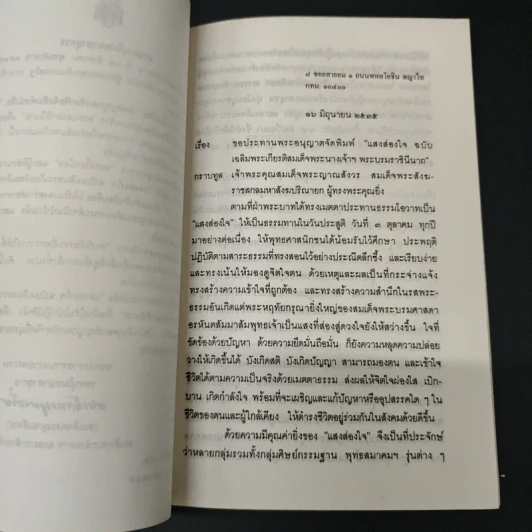 ๘ ซอยสายลม ๑ ถนนพหลโยธิน พญาไท
กทม. ๑๐๔๐๐
๑๖ มิถุนายน ๒๕๓๕
เรื่อง ขอประทานพระอนุญาตจัดพิมพ์ "แสงส่องใจ ฉบับ
เฉลิมพระเกียรติสมเด็จพระนางเจ้าฯ พระบรมราชินีนาถ"
กราบทูล เจ้าพระคุณสมเด็จพระญาณสังวร สมเด็จพระสังฆ-
ราชสกลมหาสังฆปริณายก ผู้ทรงพระคุณยิ่ง
ตามที่ฝ่าพระบาทได้ทรงเมตตาประทานธรรมโอวาทเป็น
"แสงส่องใจ" ให้เป็นธรรมทานในวันประสูติ วันที่ ๓ ตุลาคม ทุกปี
มาอย่างต่อเนื่อง ให้พุทธศาสนิกชนได้น้อมรับไว้ศึกษา ประพฤติ
ปฏิบัติตามสาระธรรมที่ทรงสอนไว้อย่างประณีตลึกซึ้ง และเรียบง่าย
และทรงเน้นให้มองดูจิตใจตน ด้วยเหตุและผลเป็นที่กระจ่างแจ้ง
ทรงสร้างความเข้าใจที่ถูกต้อง และทรงสร้างความสำนึกในรสพระ-
ธรรมอันเกิดแต่พระหฤทัยกรุณายิ่งใหญ่ของสมเด็จพระบรมศาสดา
อรหันตสัมมาสัมพุทธเจ้าเป็นแสงที่ส่องสู่ดวงใจยังให้สว่างขึ้น ใจที่
ขัดข้องด้วยปัญหา ด้วยความยึดมั่นถือมั่น ก็ยังความหลุดความปล่อย
วางให้เกิดขึ้นได้ บังเกิดสติ บังเกิดปัญญา สามารถมองตน และเข้าใจ
ชีวิตได้ตามความเป็นจริงด้วยเมตตาธรรม ส่งผลให้จิตใจผ่องใส เบิก-
บาน เกิดกำลังใจ พร้อมที่จะเผชิญและแก้ปัญหาหรืออุปสรรคใด ๆ ใน
ชีวิตของตนและผู้ใกล้เคียง ให้ดำรงชีวิตอยู่ร่วมกันในสังคมด้วยดีขึ้น
ด้วยความมีคุณค่ายิ่งของ "แสงส่องใจ" จึงเป็นที่ประจักษ์
ว่าหลายกลุ่มรวมทั้งกลุ่มศิษย์กรรมฐาน พุทธสมาคมฯ รุ่นต่าง ๆ